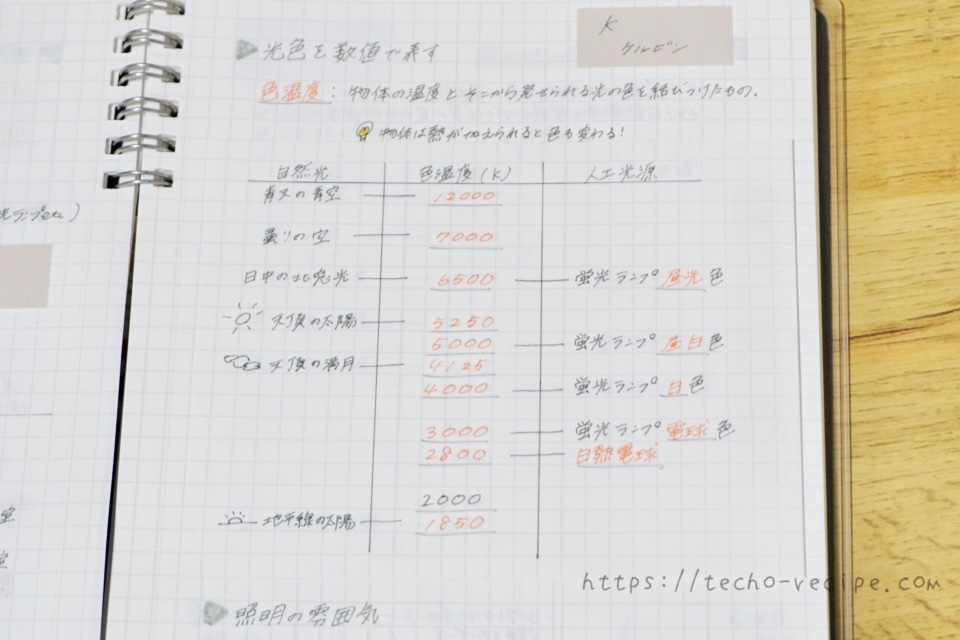 K
ケルビン
光色を数値で表す
色温度:物体の温度とそこから発せられる光の色を結びつけたもの.
物体は熱が加えられると色も変わる!
自然光 色温度(K) 人工光源
青天の青空 12000
曇りの空 7000
日中の北窓光 6500 蛍光ランプ昼光色
天頂の太陽 5250
5000 蛍光ランプ 昼白色
天頂の満月 4125
4000 蛍光ランプ 白色
3000 蛍光ランプ 電球色
2800 白熱電球
2000
地平線の太陽 1850
照明の雰囲気
https://techo-recipe.com